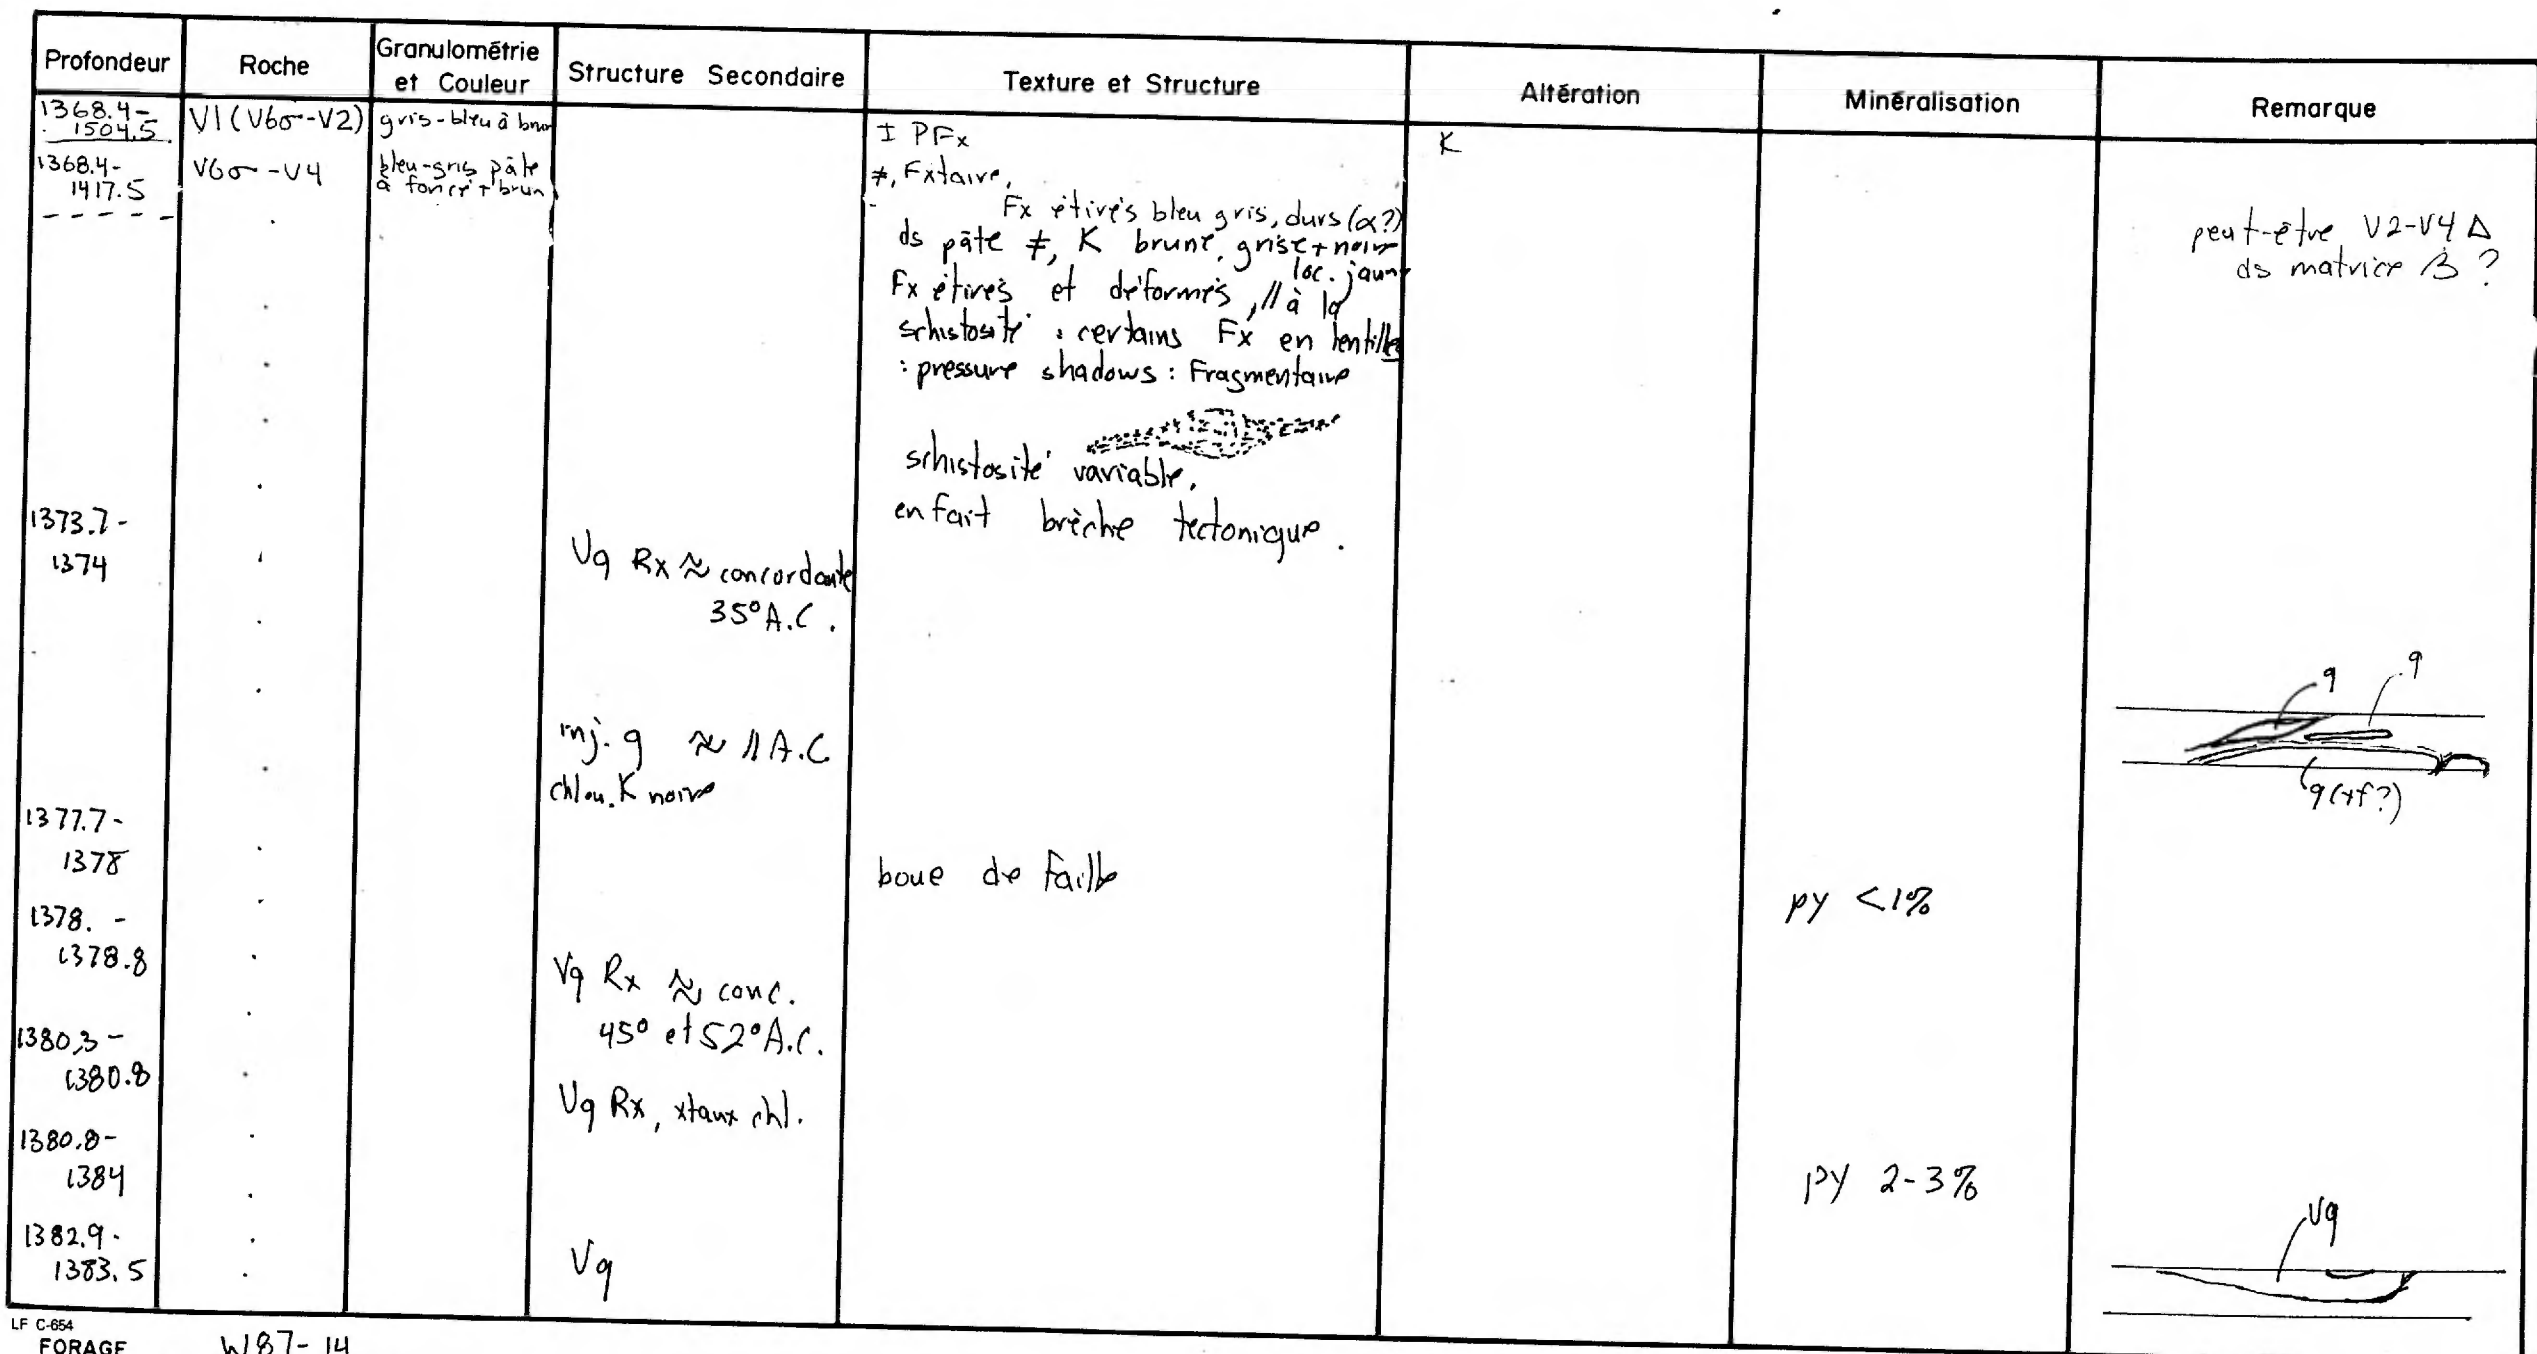 Profondeur
Roche
Granulométrie
et Couleur
Structure Secondaire
Texture et Structure
Altération
Minéralisation
Remarque
1368.4-
1504.5
V1 (V6σ-V2)
gris-bleu à brun
± PFx
K
1368.4-
1417.5
V6σ-V4
bleu-gris pâle
à foncé + brun
≠, Fxtaire,
Fx étirés bleu gris, durs (α?)
ds pâte ≠, K brune, grise + noire
loc. jaune
Fx étirés et déformés, // à la
schistosité : certains Fx en lentilles
: pressure shadows : Fragmentaire
schistosité variable.
en fait brèche tectonique.
peut-être V2-V4 Δ
ds matrice β ?
1373.7-
1374
Vq Rx ≈ concordante
35° A.C.
inj. q ≈ // A.C.
K noire
q
q
q (+f?)
1377.7-
1378
boue de faille
1378. -
1378.8
py <1%
Vq Rx ≈ conc.
45° et 52° A.C.
1380.3-
1380.8
Vq Rx, xtaux chl.
1380.8-
1384
py 2-3%
1382.9-
1383.5
Vq
Vq
LF C-654
FORAGE W87-14